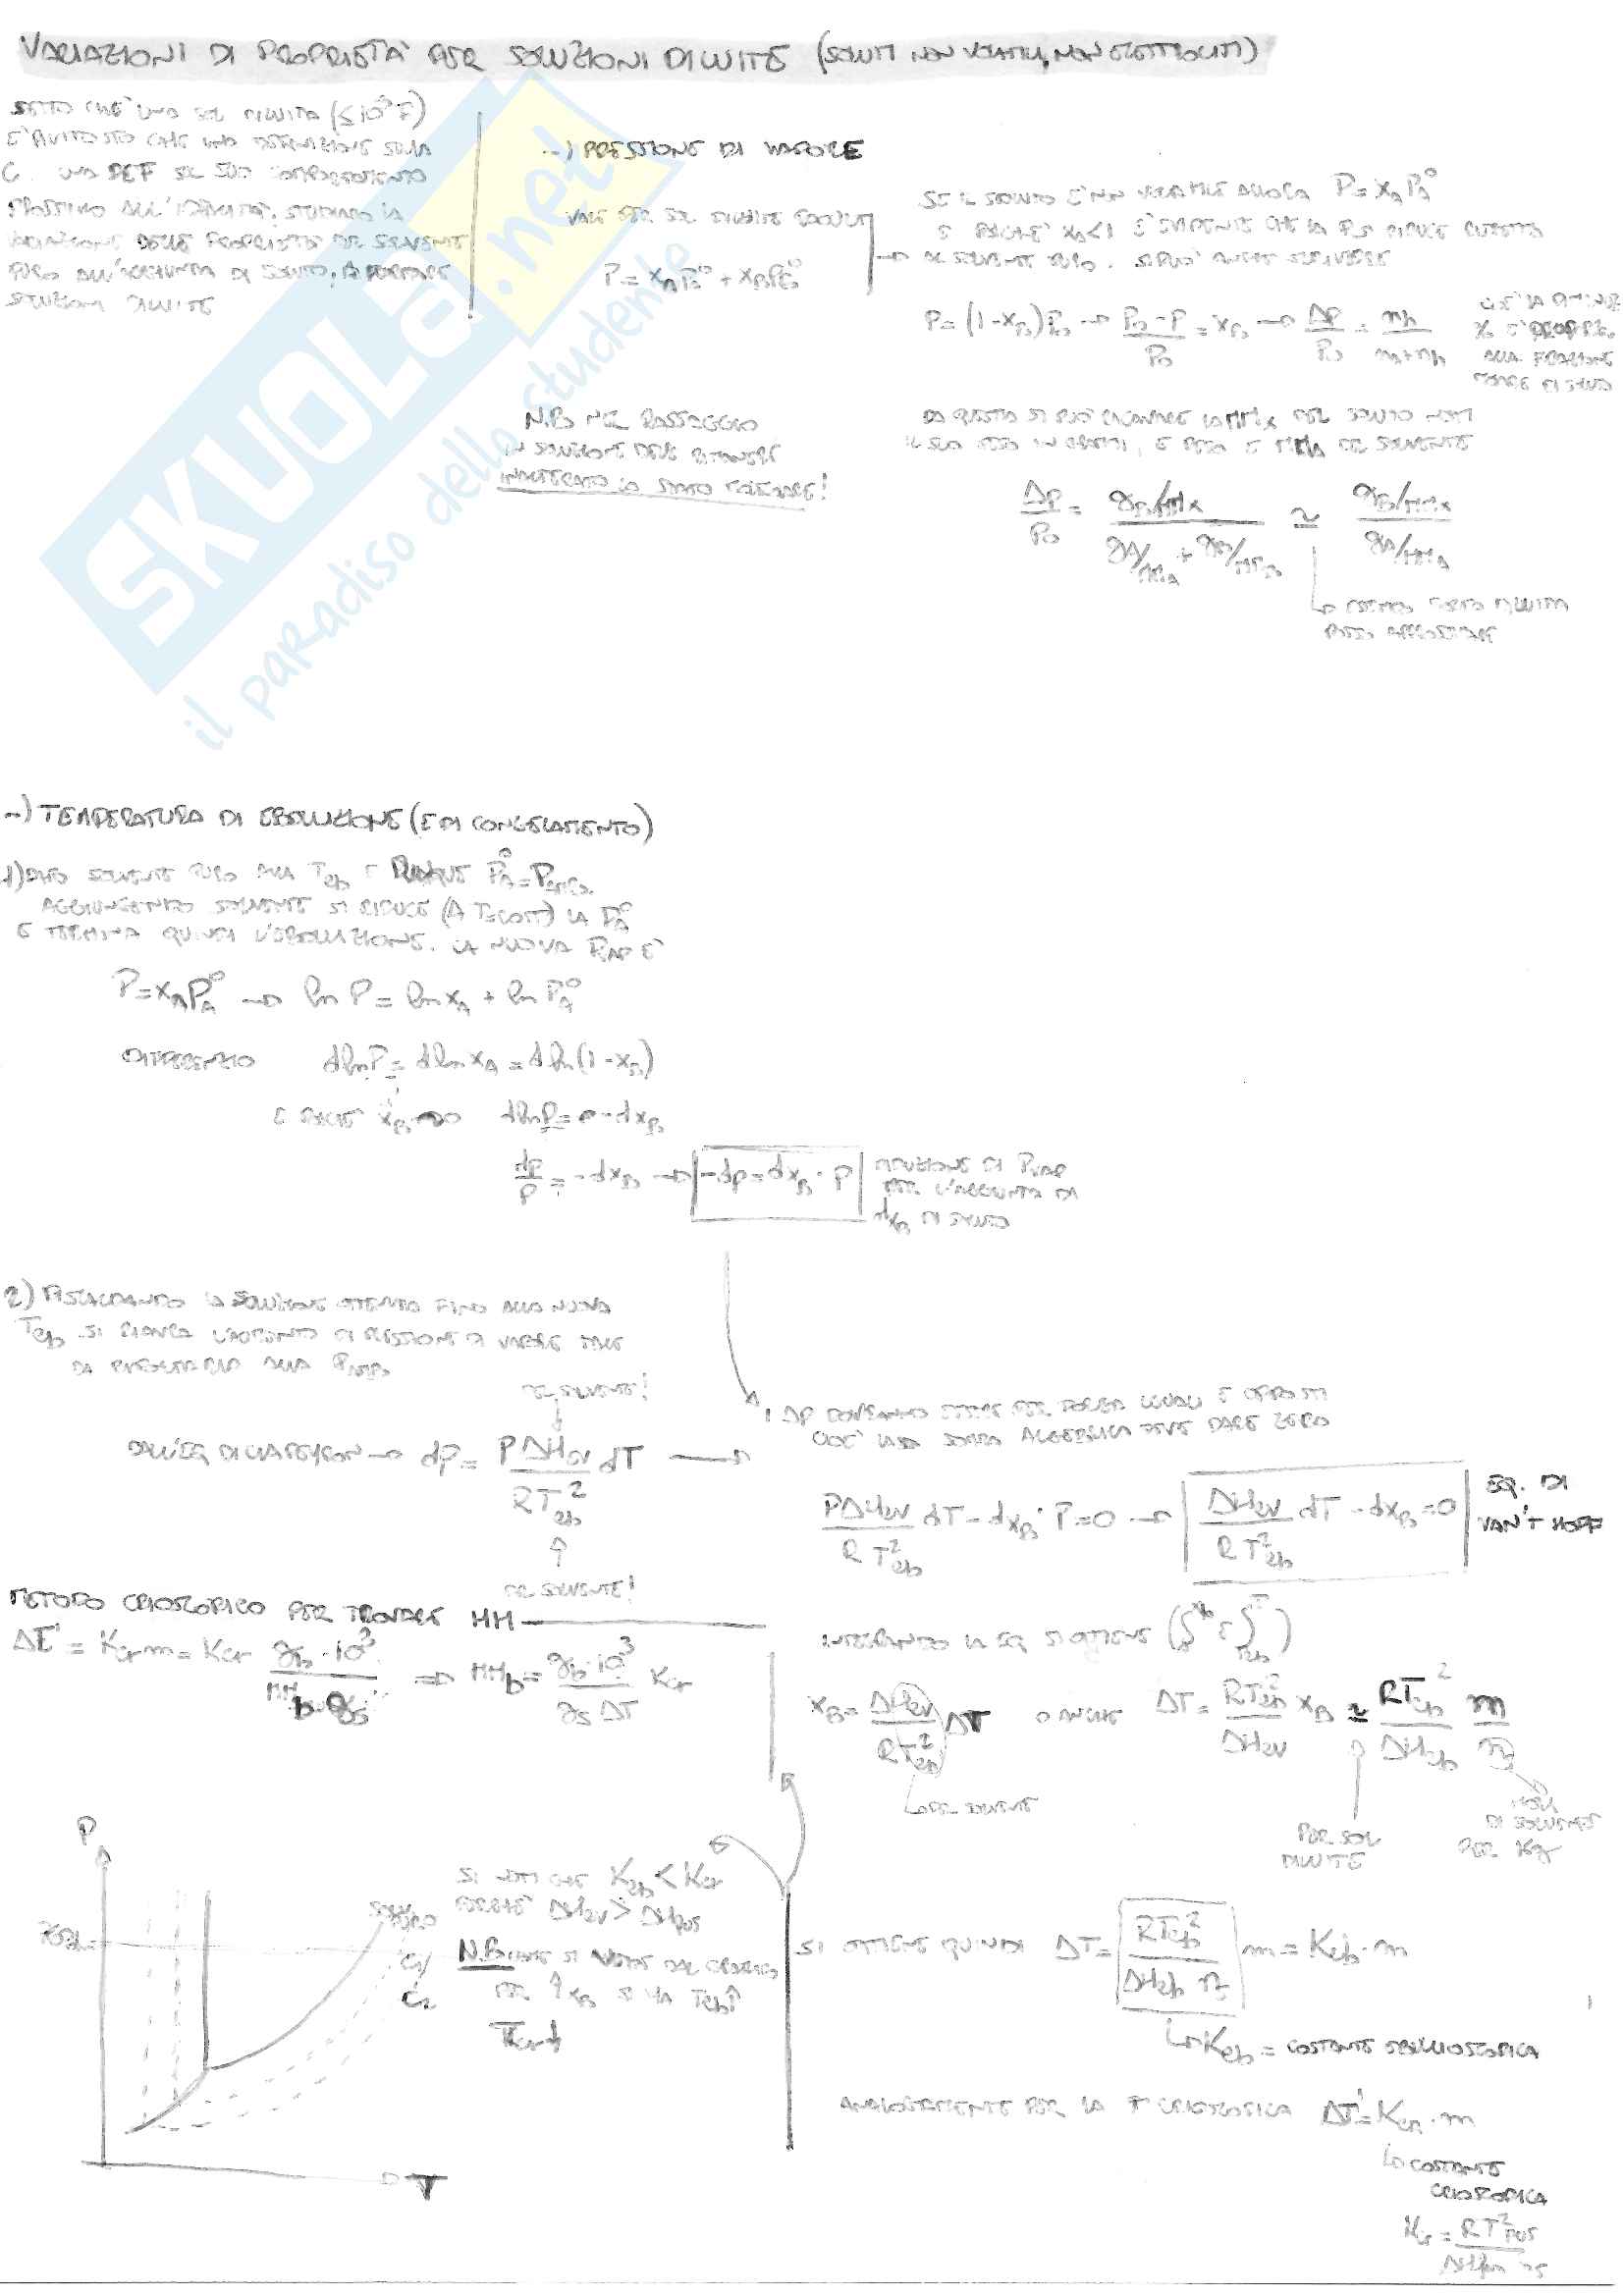 VARIAZIONI DI PROPRIETA' PER SOLUZIONI DILUITE (SOLUTI NON VOLATILI, NON ELETTROLITI)
DETTO CHE UNA SOL DILUITA
E' PIUTTOSTO CHE UNA DEFINIZIONE SULLA
C. UNA DEF SUL SUO COMPORTAMENTO
PROSSIMO ALL'IDEALITA', STUDIAMO LA
VARIAZIONE DELLE PROPRIETA' DEL SOLVENTE
PURO ALL'AGGIUNTA DI SOLUTO, A FORMARE
SOLUZIONI DILUITE
→) PRESSIONE DI VAPORE
VALE PER SOL DILUITE
P = xA PA° + xB PB°
SE IL SOLUTO E' NON VOLATILE ALLORA P = xA PA°
E POICHE' xA<1 E' EVIDENTE CHE LA P SI RIDUCE RISPETTO
AL SOLVENTE PURO. SI PUO' ANCHE SCRIVERE
P = (1-xB)P0 → P0-P / P0 = xB → ΔP / P0 = nb / na+nb
CIOE' LA DIMINUZ
% E' PROPORZ.
ALLA FRAZIONE
MOLARE DI SOLUTO
N.B. NEL PASSAGGIO
IN SOLUZIONE DEVE RIMANERE
INALTERATO LO STATO MOLECOLARE!
DA QUESTA SI PUO' RICAVARE LA MMx DEL SOLUTO NOTI
IL SUO PESO IN GRAMMI, E PESO E MMA DEL SOLVENTE
ΔP / P0 = gB/MMx / gA/MMA + gB/MMB ≃ gB/MMx / gA/MMA
ESSENDO MOLTO DILUITA
POSSO APPROSSIMARE
→) TEMPERATURA DI EBOLLIZIONE (E DI CONGELAMENTO)
1) DATO SOLVENTE PURO ALLA Teb E DUNQUE PA° = Pamb.
AGGIUNGENDO SOLVENTE SI RIDUCE (A T=COST) LA PA°
E TERMINA QUINDI L'EBOLLIZIONE. LA NUOVA Pvap E'
P = xA PA° → ln P = ln xA + ln PA°
DIFFERENZIO dlnP = dln xA = dln(1-xB)
E POICHE' xB→0 dlnP = -dxB
dp / P = -dxB → -dp = dxB · P
RIDUZIONE DI Pvap
PER L'AGGIUNTA DI
dxB DI SOLUTO
2) RISCALDANDO LA SOLUZIONE OTTENUTA FINO ALLA NUOVA
Teb SI RIAVRA' L'AUMENTO DI PRESSIONE DI VAPORE TALE
DA EGUAGLIARLA ALLA Pamb
DEL SOLVENTE!
DALL'EQ DI CLAPEYRON → dp = PΔHev / RTeb² dT →
DEL SOLVENTE!
I ΔP DOVRANNO ESSERE PER FORZA UGUALI E OPPOSTI
CIOE' LA SOMMA ALGEBRICA DEVE DARE ZERO
PΔHev / RTeb² dT - dxB · P = 0 → ΔHev / RTeb² dT - dxB = 0
EQ. DI
VAN'T HOFF
METODO CRIOSCOPICO PER TROVARE MM
ΔT' = Kcr m = Kcr gb·10³ / MMb·gs ⇒ MMb = gb·10³ / gs ΔT Kcr
INTEGRANDO LA EQ SI OTTIENE (∫ E ∫)
xB = ΔHev / RTeb² ΔT O ANCHE ΔT = RTeb² / ΔHev xB ≃ RTeb² / ΔHeb m / ns
DEL SOLVENTE
PER SOL
DILUITE
MOLI
DI SOLVENTE
PER Kg
P
T
SOLV.
PURO
C1
C2
SI NOTI CHE Keb < Kcr
PERCHE' ΔHev > ΔHfus
N.B. COME SI VEDE DAL GRAFICO
PER ↑xB SI HA Teb↑
Tcr↓
SI OTTIENE QUINDI ΔT = RTeb² / ΔHeb ns m = Keb · m
Keb = COSTANTE EBULLIOSCOPICA
ANALOGAMENTE PER LA T CRIOSCOPICA ΔT' = Kcr · m
COSTANTE
CRIOSCOPICA
Kcr = RT²fus / ΔHfus ns
SKUOLA.net
il paradiso dello studente